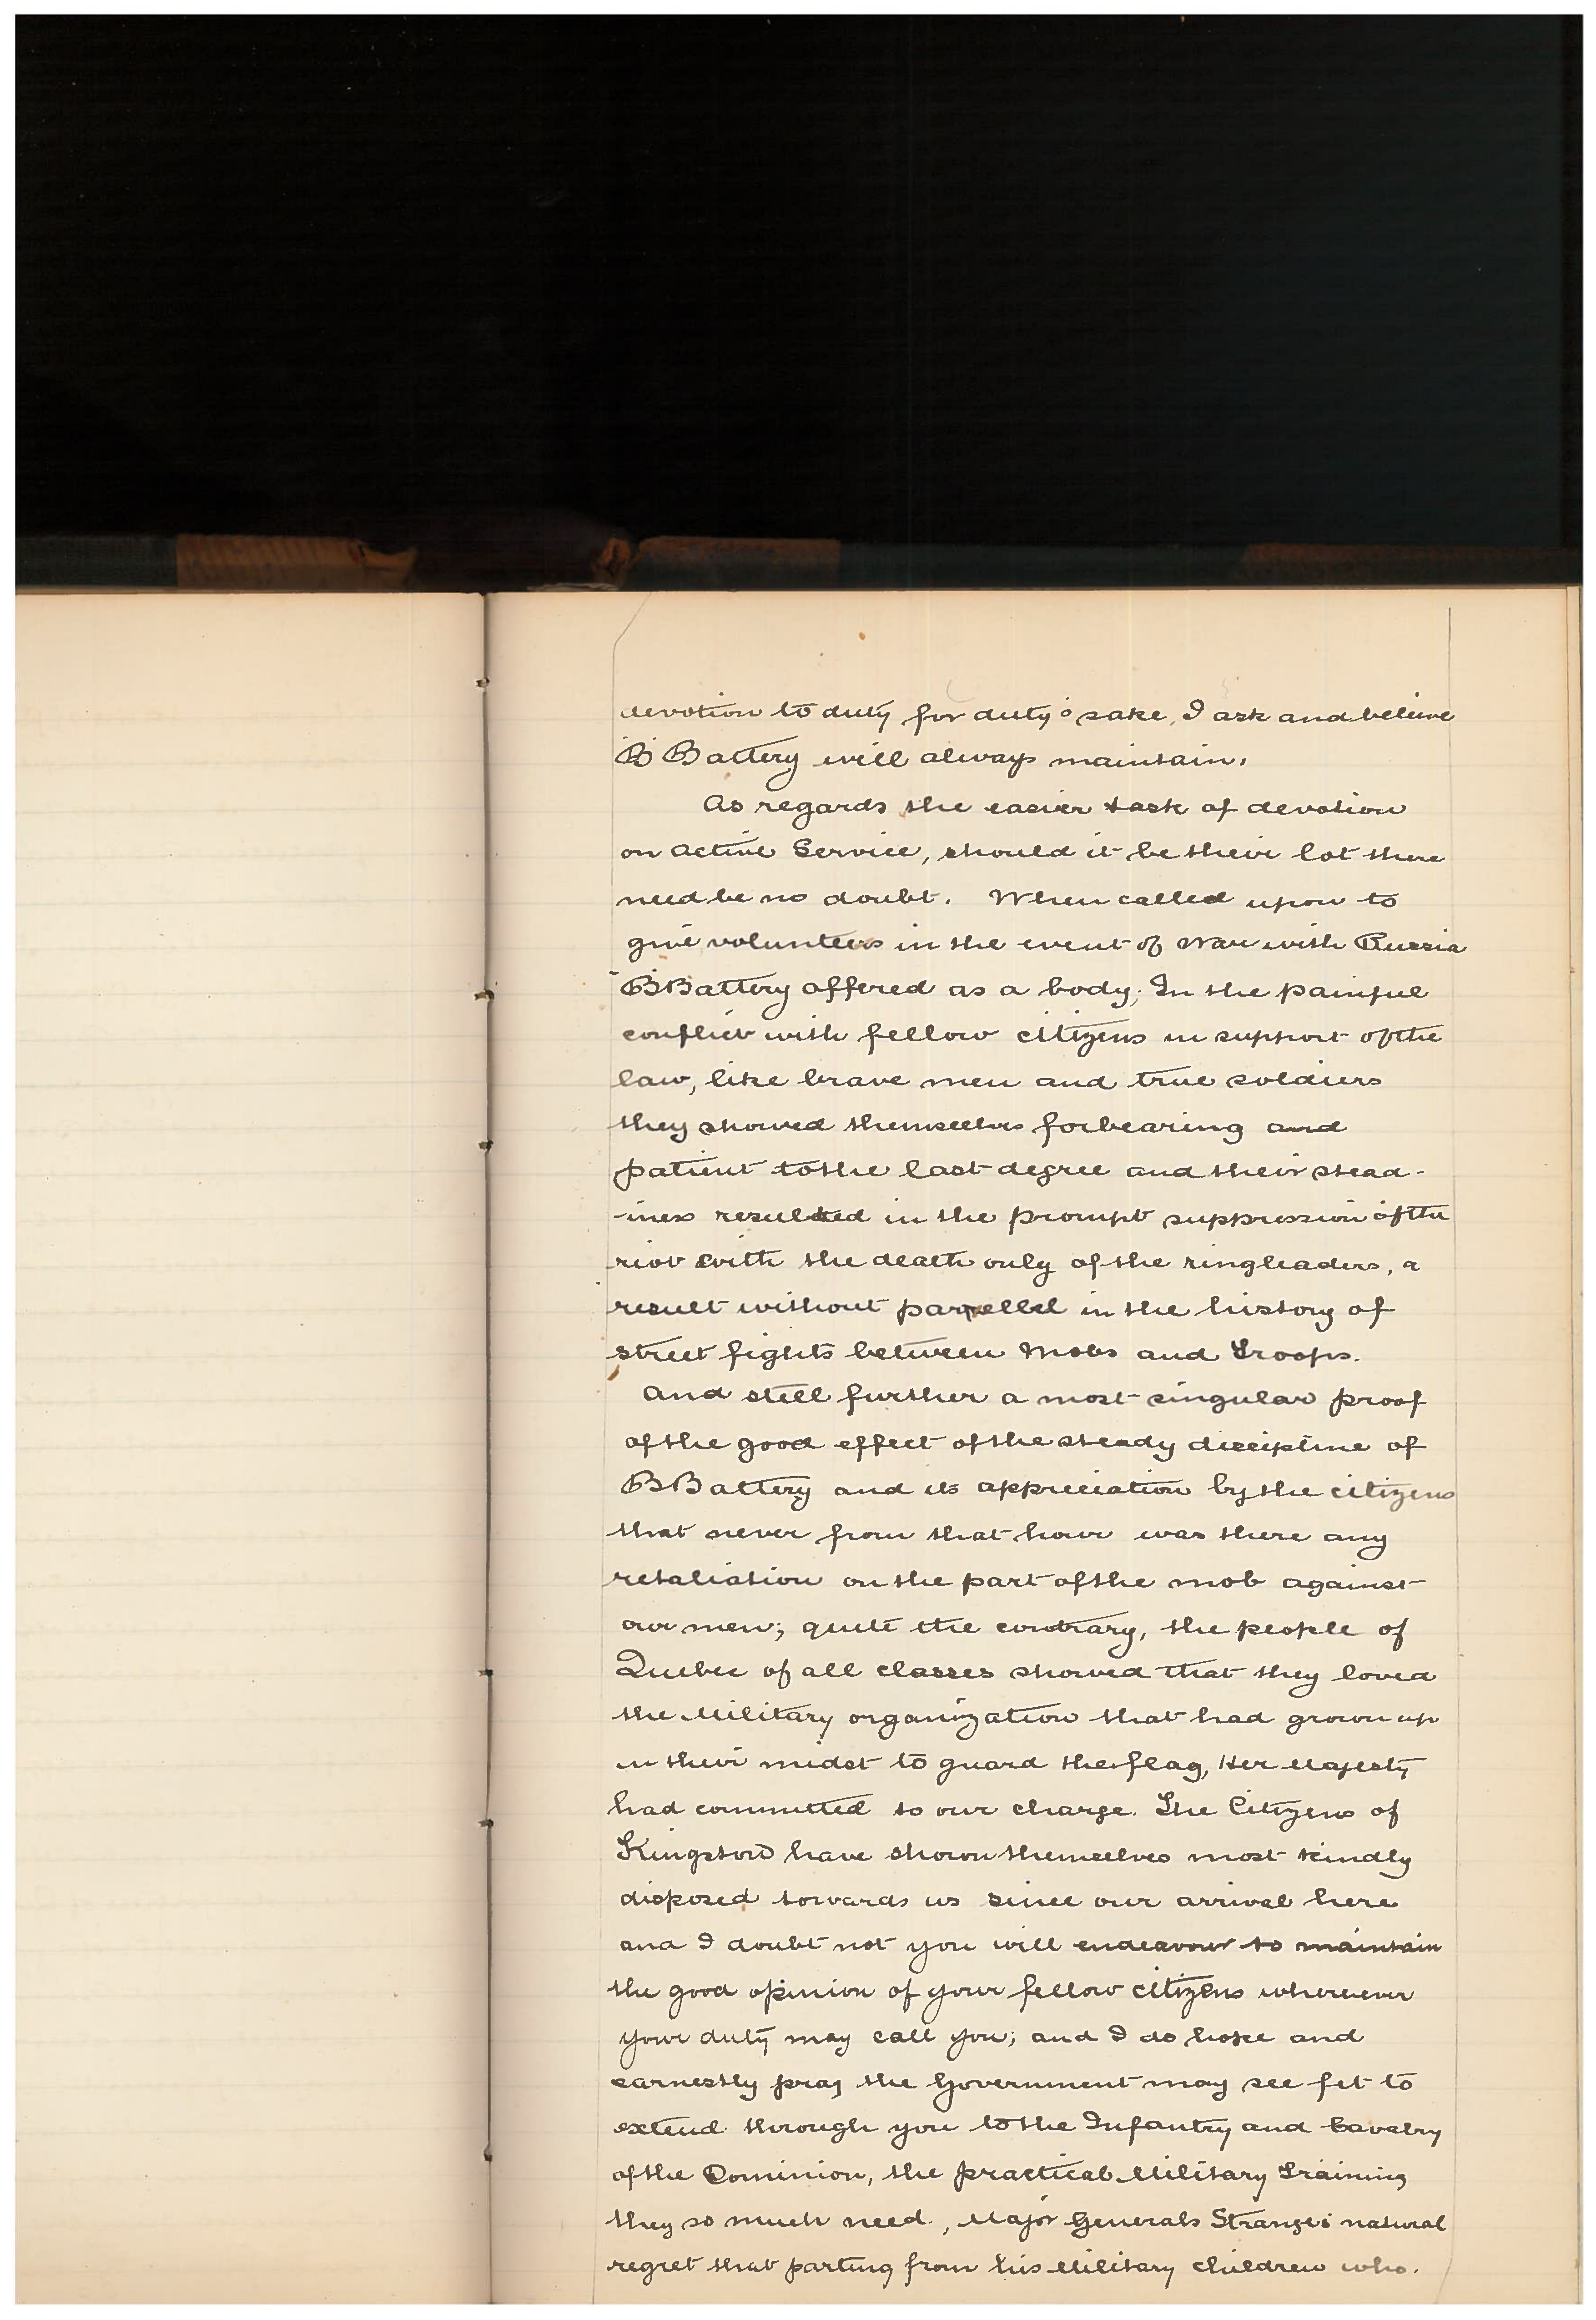 devotion to duty for duty's sake, I ask and believe
'B' Battery will always maintain.
As regards the easier task of devotion
on active Service, should it be their lot there
need be no doubt. When called upon to
give volunteers in the event of war with Russia
"B Battery offered as a body; In the painful
conflict with fellow citizens in support of the
law, like brave men and true soldiers
they showed themselves forbearing and
patient to the last degree and their stead-
-iness resulted in the prompt suppression of the
riot with the death only of the ringleaders, a
result without parellel in the history of
street fights between Mobs and Troops.
And still further a most singular proof
of the good effect of the steady discipline of
B Battery and its appreciation by the citizens
that never from that hour was there any
retaliation on the part of the mob against
our men; quite the contrary, the people of
Quebec of all classes showed that they loved
the Military organization that had grown up
in their midst to guard the flag, Her Majesty
had committed to our charge. The Citizens of
Kingston have shown themselves most kindly
disposed towards us since our arrival here
and I doubt not you will endeavour to maintain
the good opinion of your fellow citizens wherever
your duty may call you; and I do hope and
earnestly pray the Government may see fit to
extend through you to the Infantry and Cavalry
of the Dominion, the practical Military Training
they so much need., Major Generals Strange's natural
regret that parting from his Military children who.